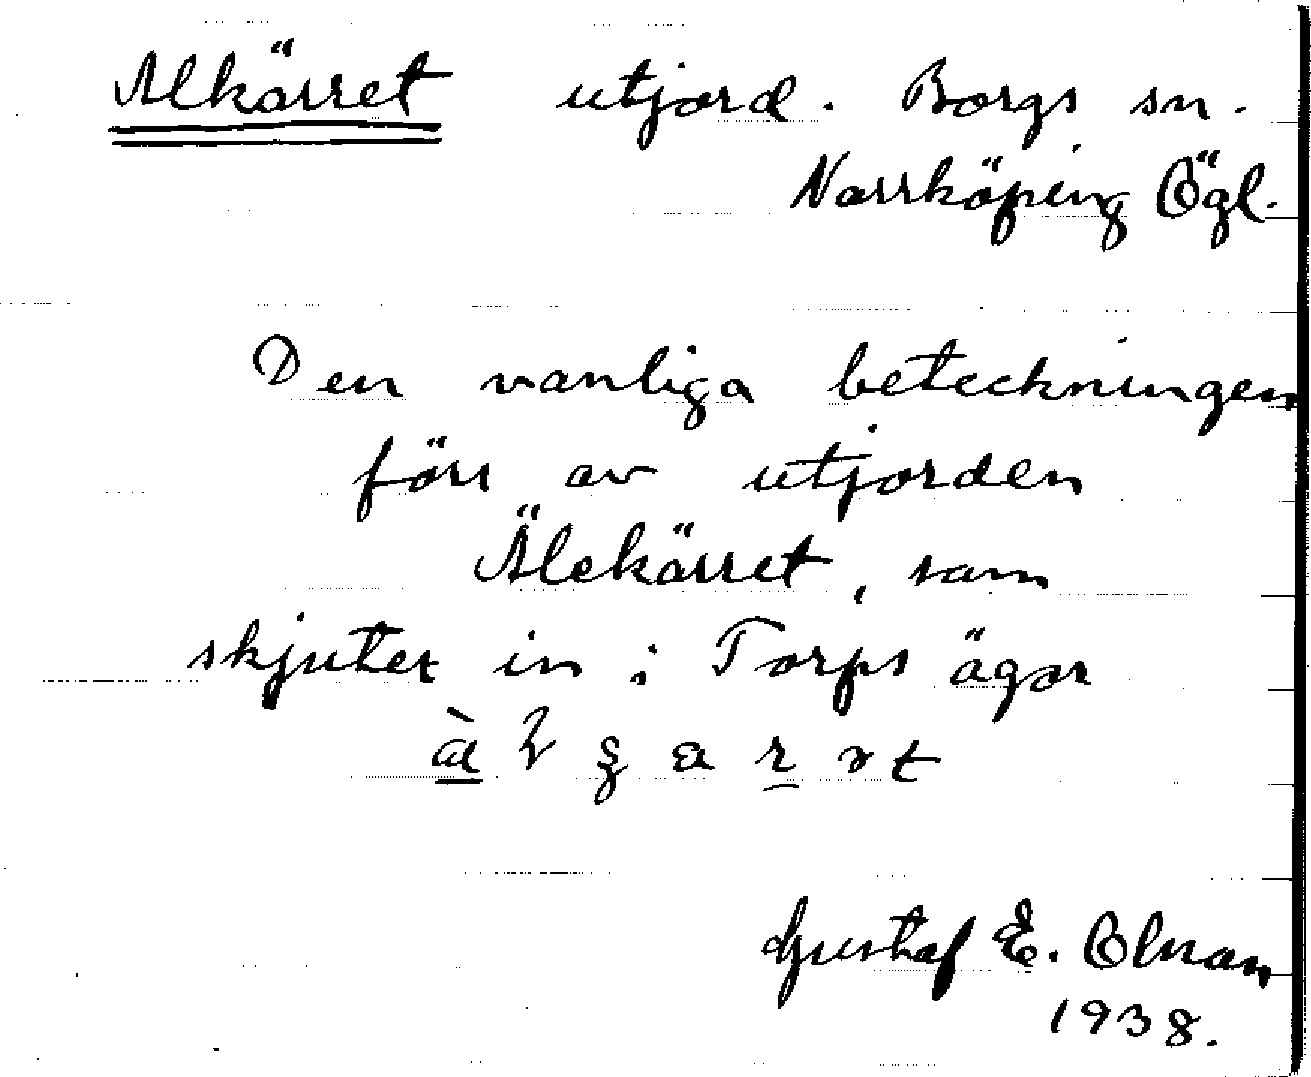 Alkärret utjord. Borgs sn.
Norrköping Ögl.
Den vanliga beteckningen
förr av utjorden
Älekärret, som
skjuter in i Torps ägor
Gustaf E. Olman
1938.